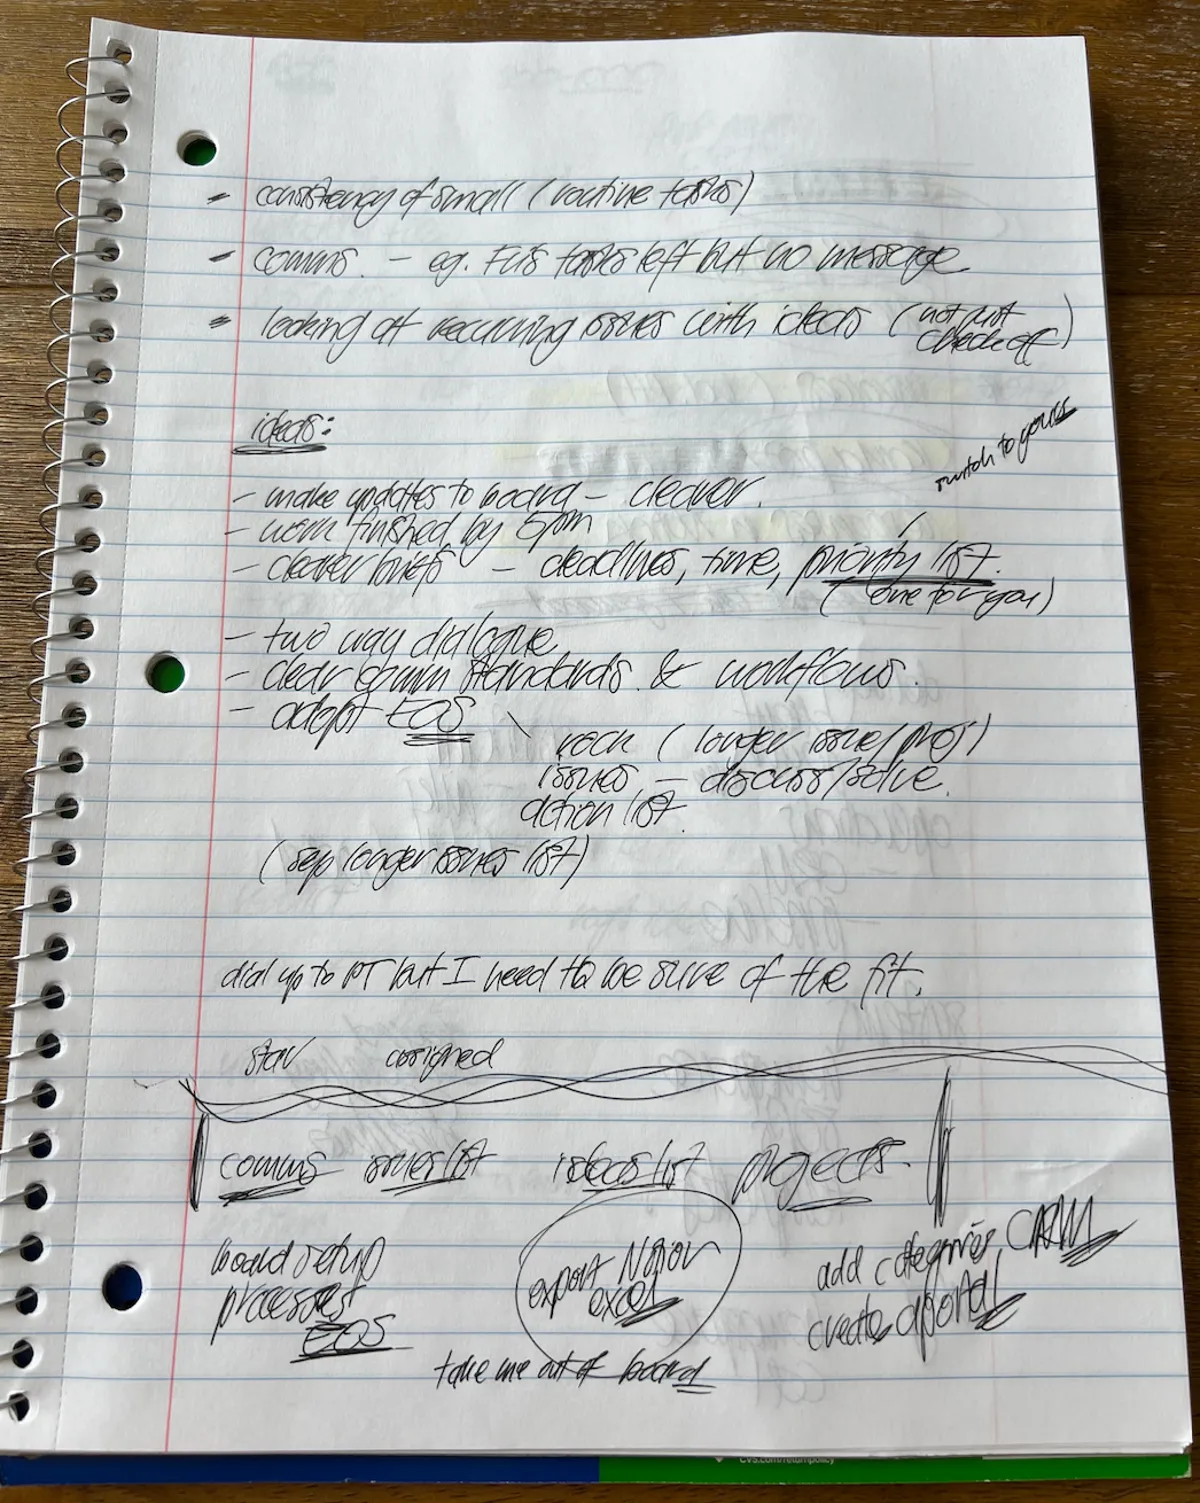 - consistency of small (routine tasks)
- comms. - eg. tasks left but no message
- looking at recurring issues with ideas (not just check off)
ideas:
switch to yours
- make updates to board - clearer.
- work finished by 5pm
- clearer briefs - deadlines, time, priority list.
(one for you)
- two way dialogue
- clear comm standards & workflows.
- adopt EOS \
rock (longer issue/proj)
issues - discuss/solve.
action list.
(sep longer issues list)
dial up to PT but I need to be sure of the fit.
star assigned
comms issues list ideas list projects.
board setup
processes
EOS
export Notion
excel
add categories CRM
create a portal
take me out of board
CVS.com/returnpolicy